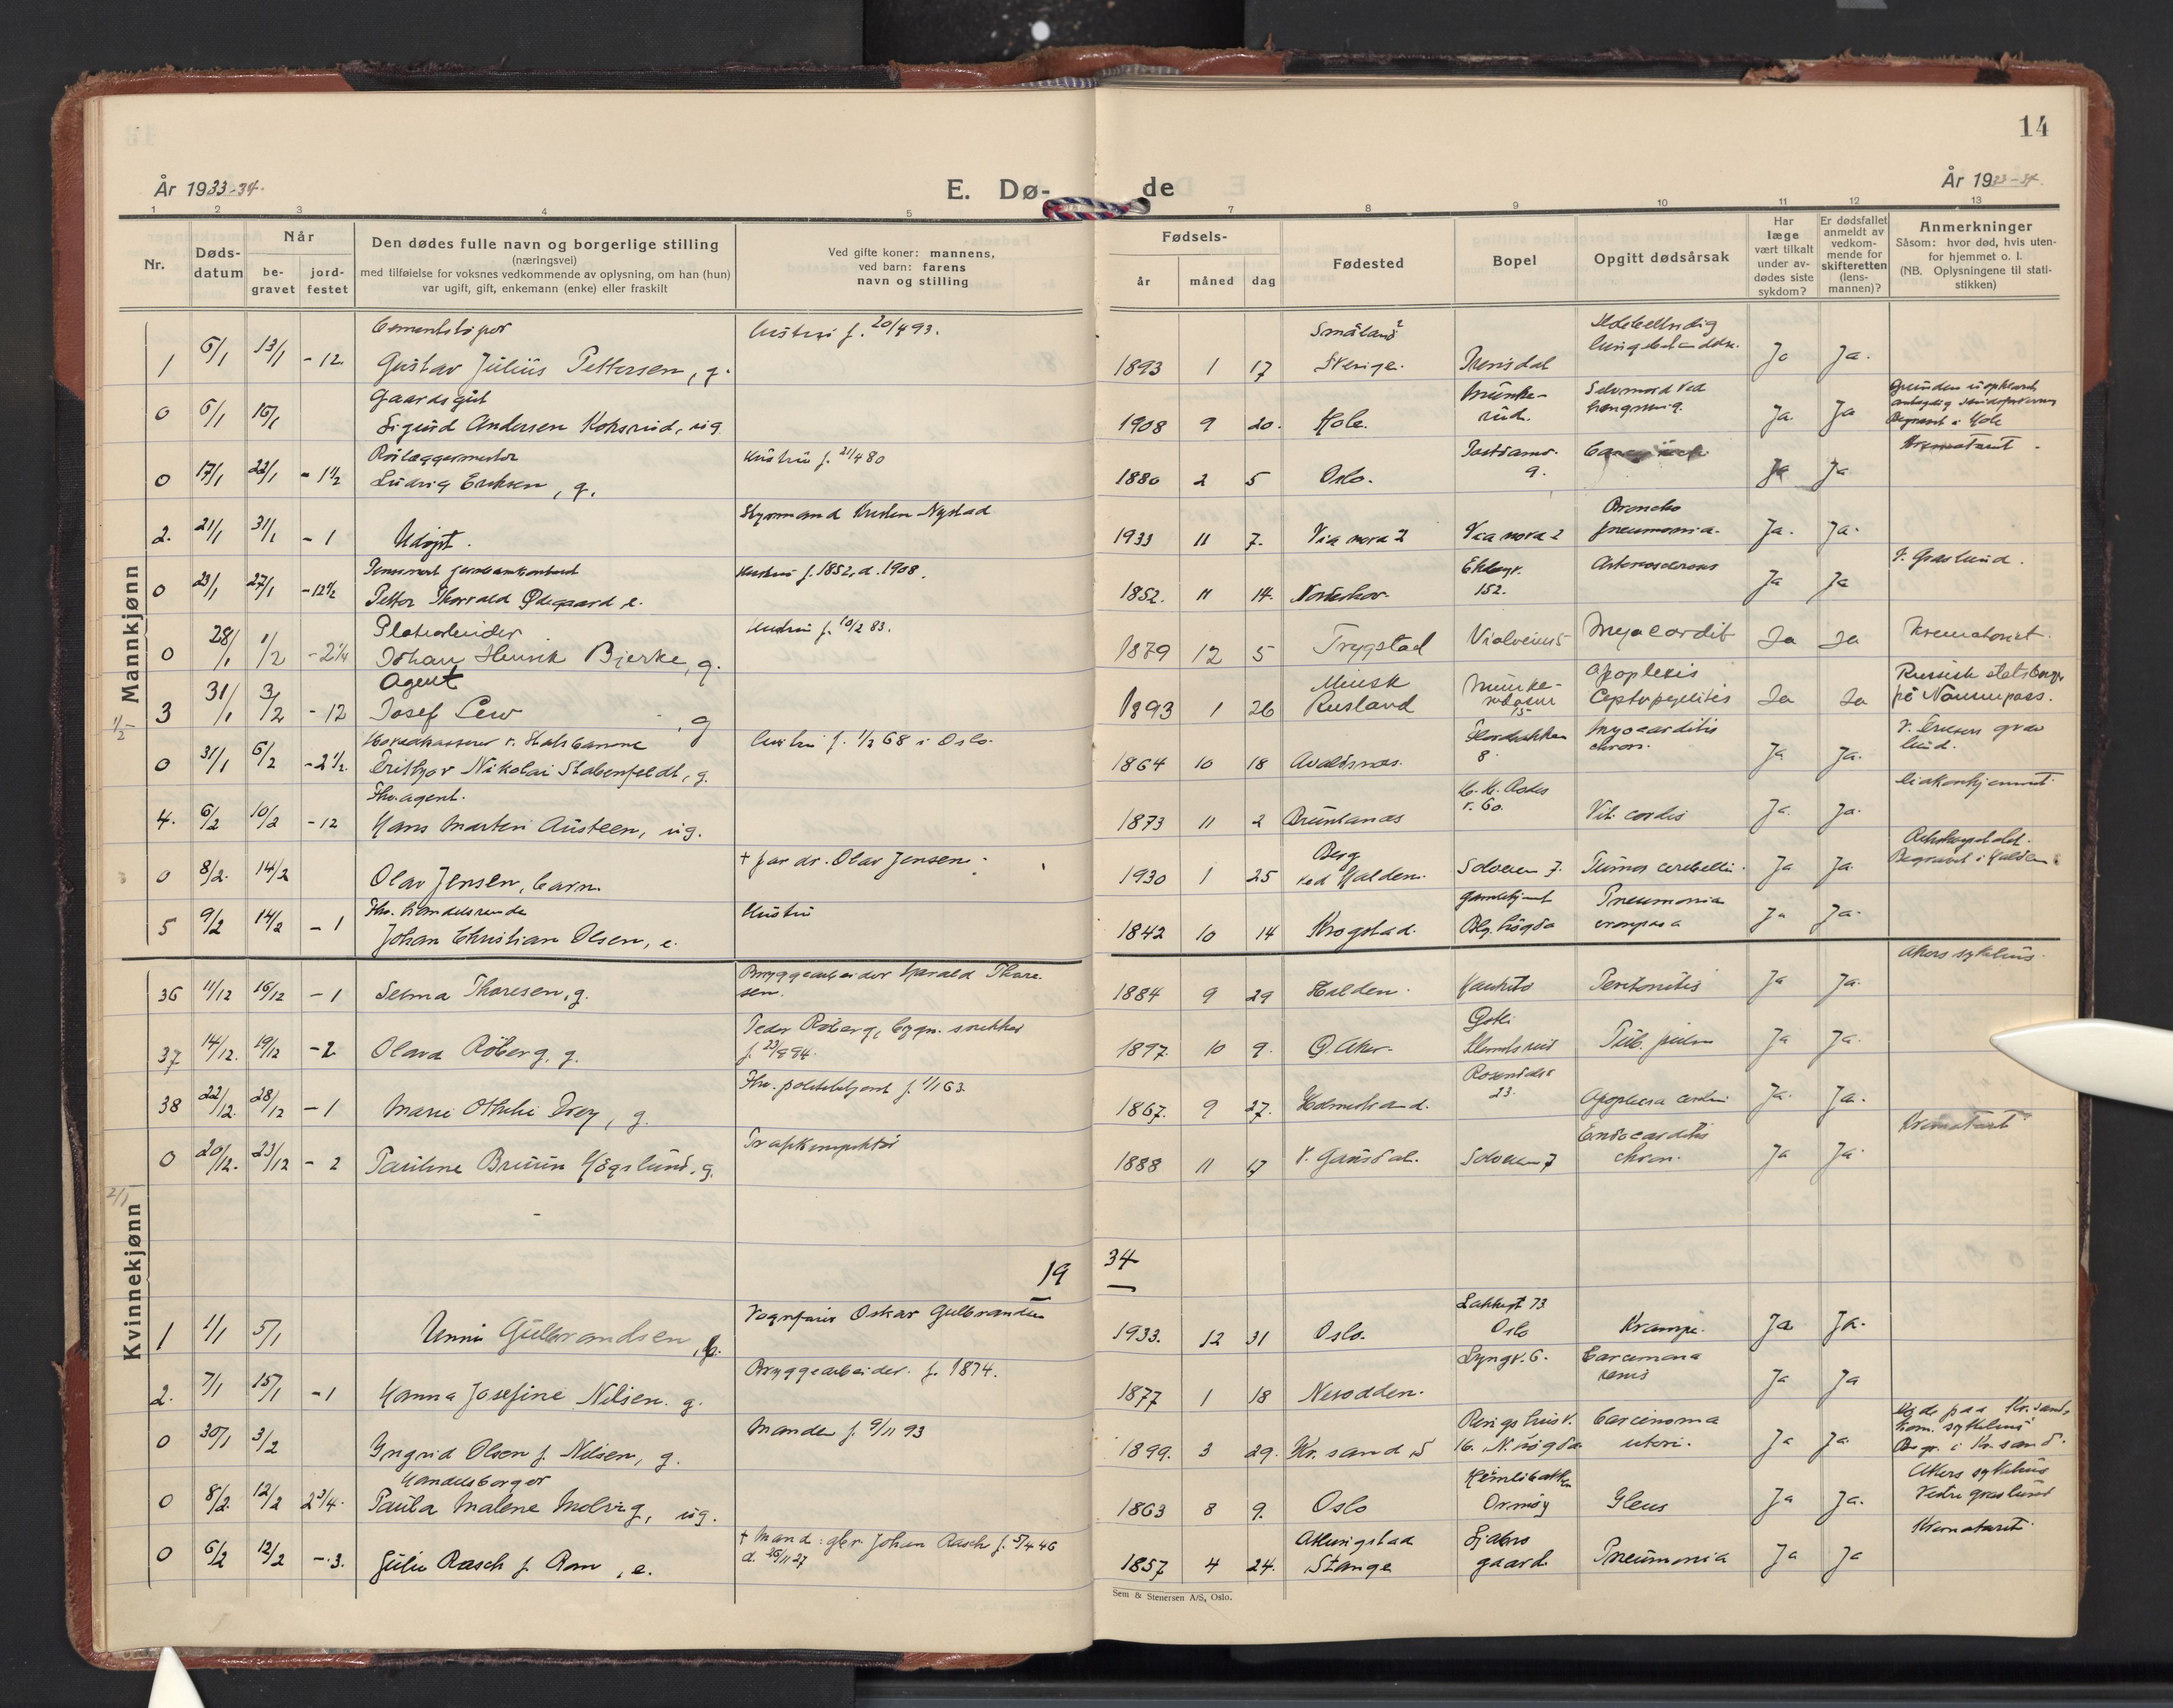 14
År 1933-34.
E. Dø-
de
År 1933-34.
1 2 3 4 5 7 8 9 10 11 12 13
Nr.
Døds-
datum
Når
be-
gravet
jord-
festet
Den dødes fulle navn og borgerlige stilling
(næringsvei)
med tilføielse for voksnes vedkommende av oplysning, om han (hun)
var ugift, gift, enkemann (enke) eller fraskilt
Ved gifte koner: mannens,
ved barn: farens
navn og stilling
Fødsels-
år måned dag
Fødested
Bopel
Opgitt dødsårsak
Har
læge
vært tilkalt
under av-
dødes siste
sykdom?
Er dødsfallet
anmeldt av
vedkom-
mende for
skifteretten
(lens-
mannen)?
Anmerkninger
Såsom: hvor død, hvis uten-
for hjemmet o. l.
(NB. Oplysningene til stati-
stikken)
Mannkjønn
Cementstøper Hustru f. 20/4 93. Småland
1 6/1 13/1 - 12. Gustav Julius Pettersen, g. 1893 1 17 Sverige. Ja Ja.
Gaardsgut Munke- Selvmord ved
0 6/1 16/1 Sigurd Andersen Koksrud, ug. 1908 9 20. Hole. rud. hængning. Ja Ja Begravet i Hole
Rørlæggermester Hustru f. 21/4 80 Krematoriet
0 17/1 22/1 - 1 1/2 Ludvig Eriksen, g. 1880 2 5 Oslo. Ja Ja
Styrmand Kristen Nystad Broncho
2. 21/1 31/1 - 1 Udøpt. 1933 11 7. Via nova 2 Via nova 2 pneumonia. Ja. Ja.
Hustru f. 1852, d. 1908. Ekebgv. Arteriosclerosis V. Gravlund.
0 23/1 27/1 - 12 1/2 Petter Thorvald Ødegaard e. 1852. 11 14. Norderhov. 152. Ja Ja
Platearbeider Hustru f. 10/2 83.
0 28/1 1/2 - 2 1/4 Johan Henrik Bjerke, g. 1879 12 5 Trygstad Violveien 5 Myocardit Ja Ja Krematoriet.
Agent Minsk Munke- Apoplexis Russisk statsborger
3 31/1 3/2 - 12 Josef Lew, g 1893 1 26 Rusland 15 Ja Ja på Nansenpass.
Hovedkasserer v. Statsbanene Hustru f. 1/2 68 i Oslo. Myocarditis
0 31/1 6/2 - 2 1/2. Nikolai Stabenfeldt, g. 1864 10 18 Avaldsnes. 8. chron. Ja Ja. lund.
Fhv. agent.
4. 6/2 10/2 - 12 Hans Martin Austeen, ug. 1873 11 2 Brunlanes v. 60. Vit. cordis Ja. Ja.
† pardr. Olav Jensen. Berg Rikshospitalet.
0 8/2. 14/2 Olav Jensen, barn. 1930 1 25 ved Halden. Solveien 7. Tumor cerebelli. Ja Ja Begravet i Halden.
Fhv. handelsmand Hustru gamlehjemt Pneumonia
5 9/2 14/2 - 1 Johan Christian Olsen, e. 1842 10 14 Krogstad. crouposa Ja Ja.
Kvinnekjønn
Bryggearbeider Harald Thore- Akers sykehus.
36 11/12 16/12 - 1 Selma Thoresen, g. sen. 1884 9 29 Halden. Peritonitis Ja Ja.
Peder Röberg, bygn. snekker
37 14/12. 19/12 - 2 Olava Röberg, g. f. 23/9 94. 1897. 10 9. Ø. Aker. Tub. pulm Ja Ja.
Fhv. politibetjent f. 1/1 63. Rosenders
38 22/12. 28/12 - 1 Marie Othilie Drey, g. 1867. 9 27. Holmestrand. 23. Apoplexia cerebri Ja. Ja.
Trafikinspektør Endocarditis Krematoriet
0 20/12. 23/12 - 2 Pauline Bruun Høgslund, g. 1888 11 17 V. Gausdal. Solveien 7 chron. Ja Ja.
19 34
Vognfører Oskar Gulbrandsen Lakkegt 73
1 1/1 5/1 Unni Gulbrandsen, b. 1933. 12 31 Oslo. Oslo Krampe. Ja Ja.
Bryggearbeider. f. 1874. Lyngv. 6. Carcinoma
2. 7/1 15/1 - 1 Hanna Josefine Nilsen. g. 1877 1 18 Nesodden. renis Ja Ja
Manden f. 9/11 93 Carcinoma Døde paa Kr.sands
0 30/1 3/2 Yngrid Olsen f. Nilsen, g. 1899. 3 29. Kr. sand S 16. uteri. Ja Ja kom. sykehus
Begr. i Kr. sand.
Handelsborger Akers sykehus
0 8/2. 12/2 2 3/4. Paula Malene Molvig, ug. 1863 8 9. Oslo Ormøy Ileus Ja Ja. Vestre gravlund
† Mand: gbr. Johan Rasch f. 5/4 46 Krematoriet.
0 6/2 12/2 - 3. Julie Rasch f. Ram, e. d. 26/11 27 1857 4 24. Stange gaard. Pneumonia Ja Ja
Sem & Stenersen A/S, Oslo.